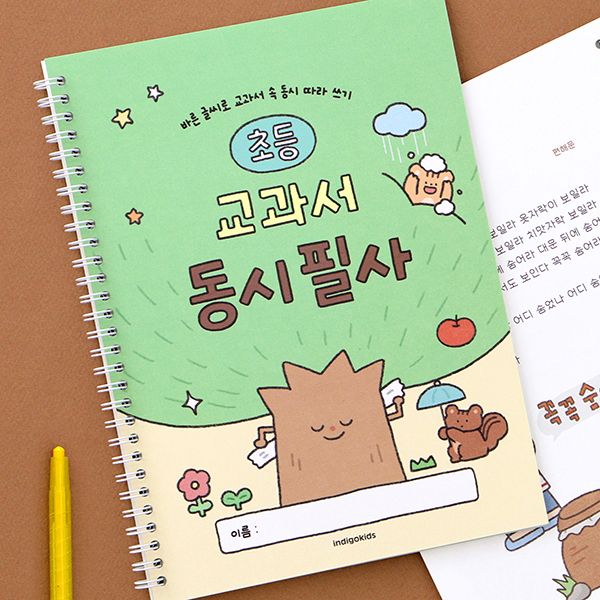 바른 글씨로 교과서 속 동시 따라 쓰기
초등
교과서
동시 필사
이름 :
indigokids
편해문
보일라 옷자락이 보일라
보일라 치맛자락 보일라
에 숨어라 대문 뒤에 숨어
서도 보인다 꼭꼭 숨어라
어디 숨었나 어디 숨
꼭꼭 숨